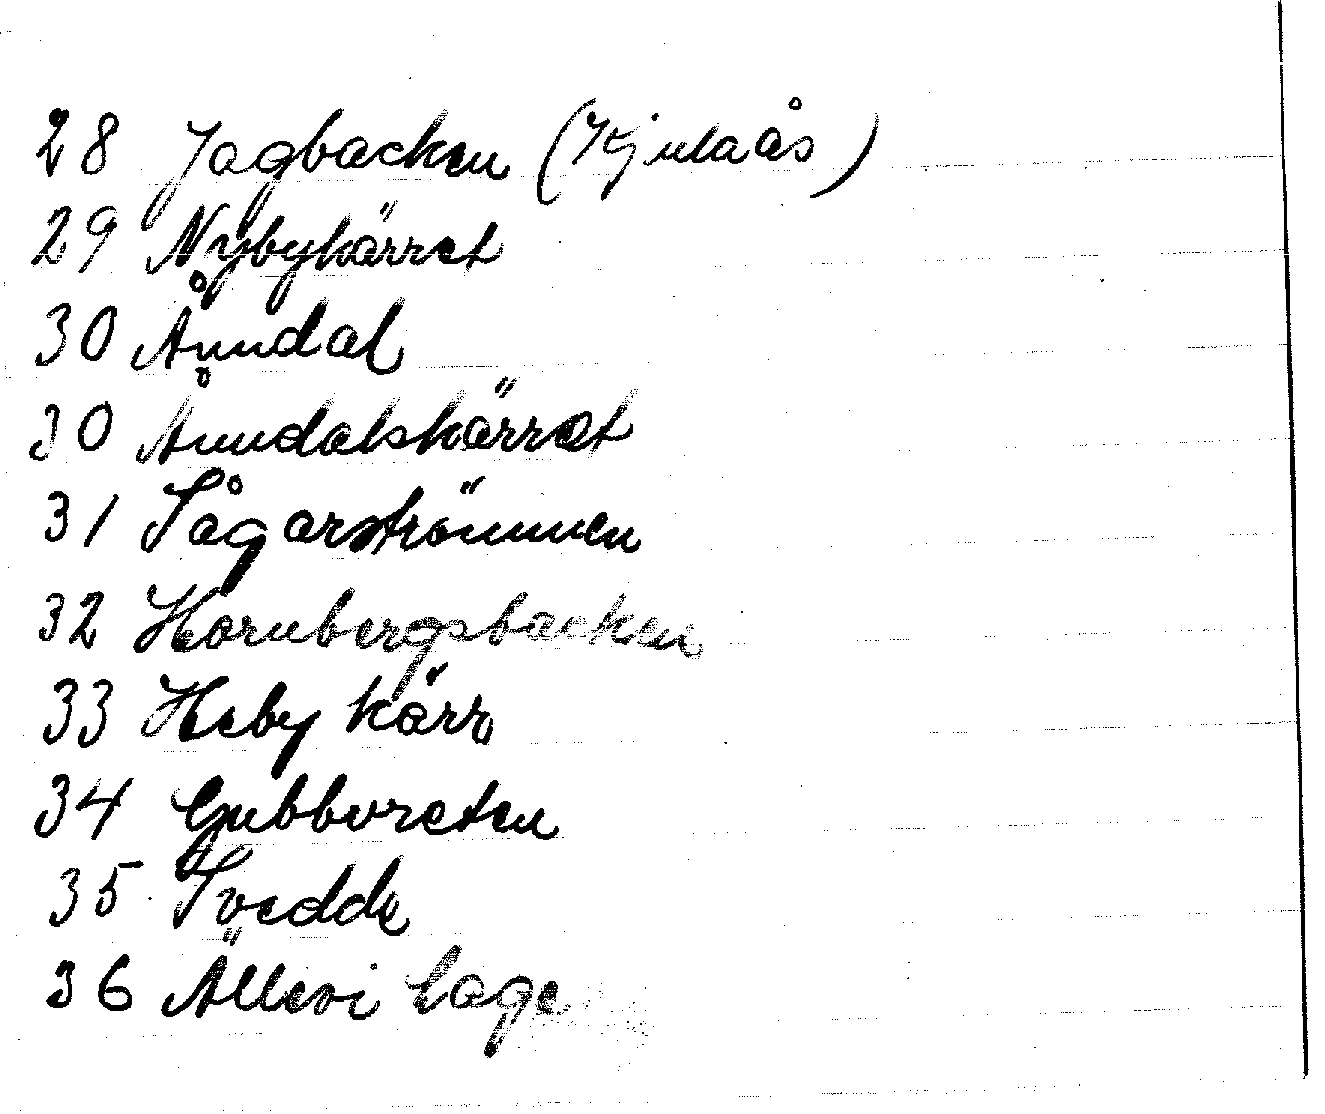 28 Jagbacken (Kjulaås)
29 Nybykärret
30 Ånndal
30 Ånndalskärret
31 Sågarströmmen
32 Hornbergsbacken
33 Heby kärr
34 Gubbvreten
35 Svedde
36 Ällevi hage